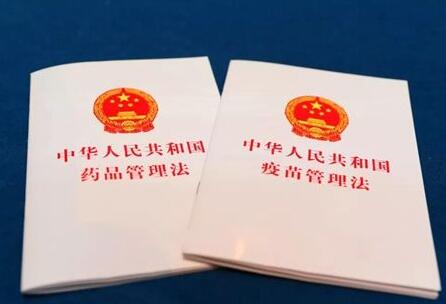 中华人民共和国
药品管理法
中华人民共和国
疫苗管理法